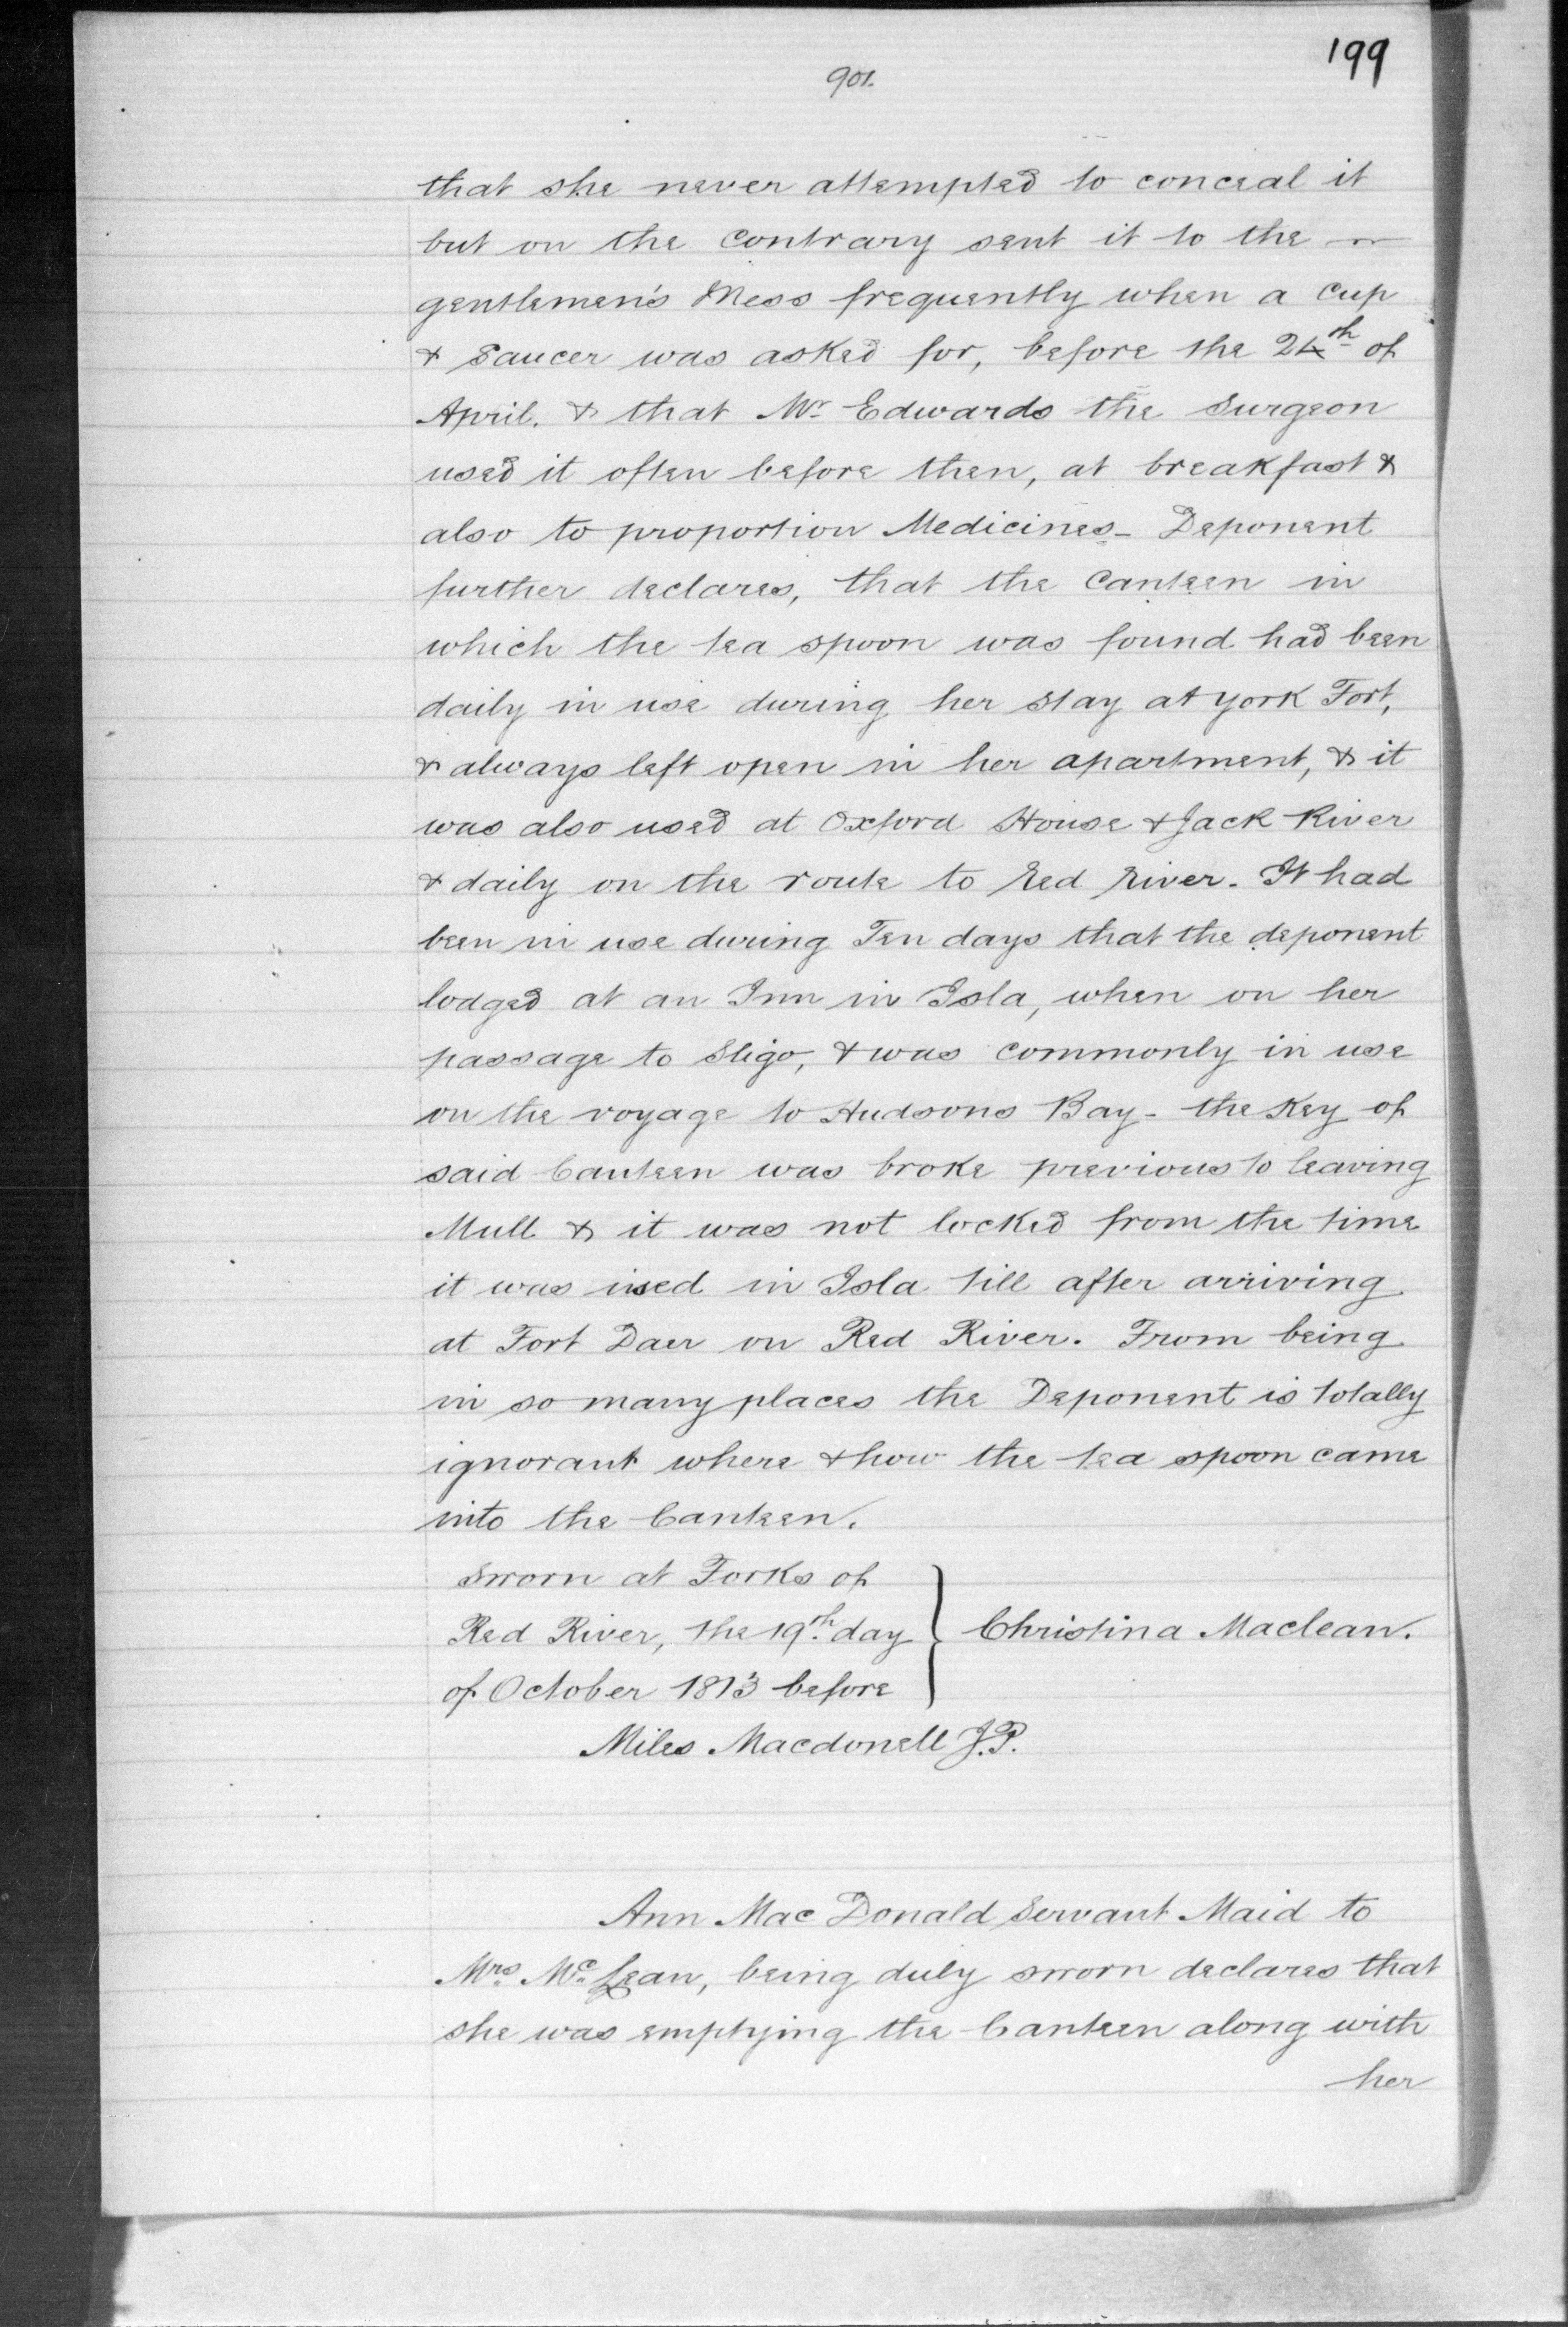 199
901.
that she never attempted to conceal it
but on the contrary sent it to the —
gentlemen's Mess frequently when a cup
& saucer was asked for, before the 24th of
April. & that Mr Edwards the Surgeon
used it often before then, at breakfast &
also to proportion Medicines_ Deponent
further declares, that the Canteen in
which the tea spoon was found had been
daily in use during her stay at York Fort,
& always left open in her apartment, & it
was also used at Oxford House & Jack River
& daily on the route to Red River. It had
been in use during Ten days that the deponent
lodged at an Inn in Isla, when on her
passage to Sligo, & was commonly in use
on the voyage to Hudsons Bay - the Key of
said Canteen was broke previous to leaving
Mull & it was not locked from the time
it was used in Isla till after arriving
at Fort Daer on Red River. From being
in so many places the Deponent is totally
ignorant where & how the tea spoon came
into the Canteen.
Sworn at Forks of
Red River, the 19th day } Christina Maclean.
of October 1813 before
Miles Macdonell J.P.
Ann Mac Donald Servant Maid to
Mrs McLean, being duly sworn declares that
she was emptying the Canteen along with
her